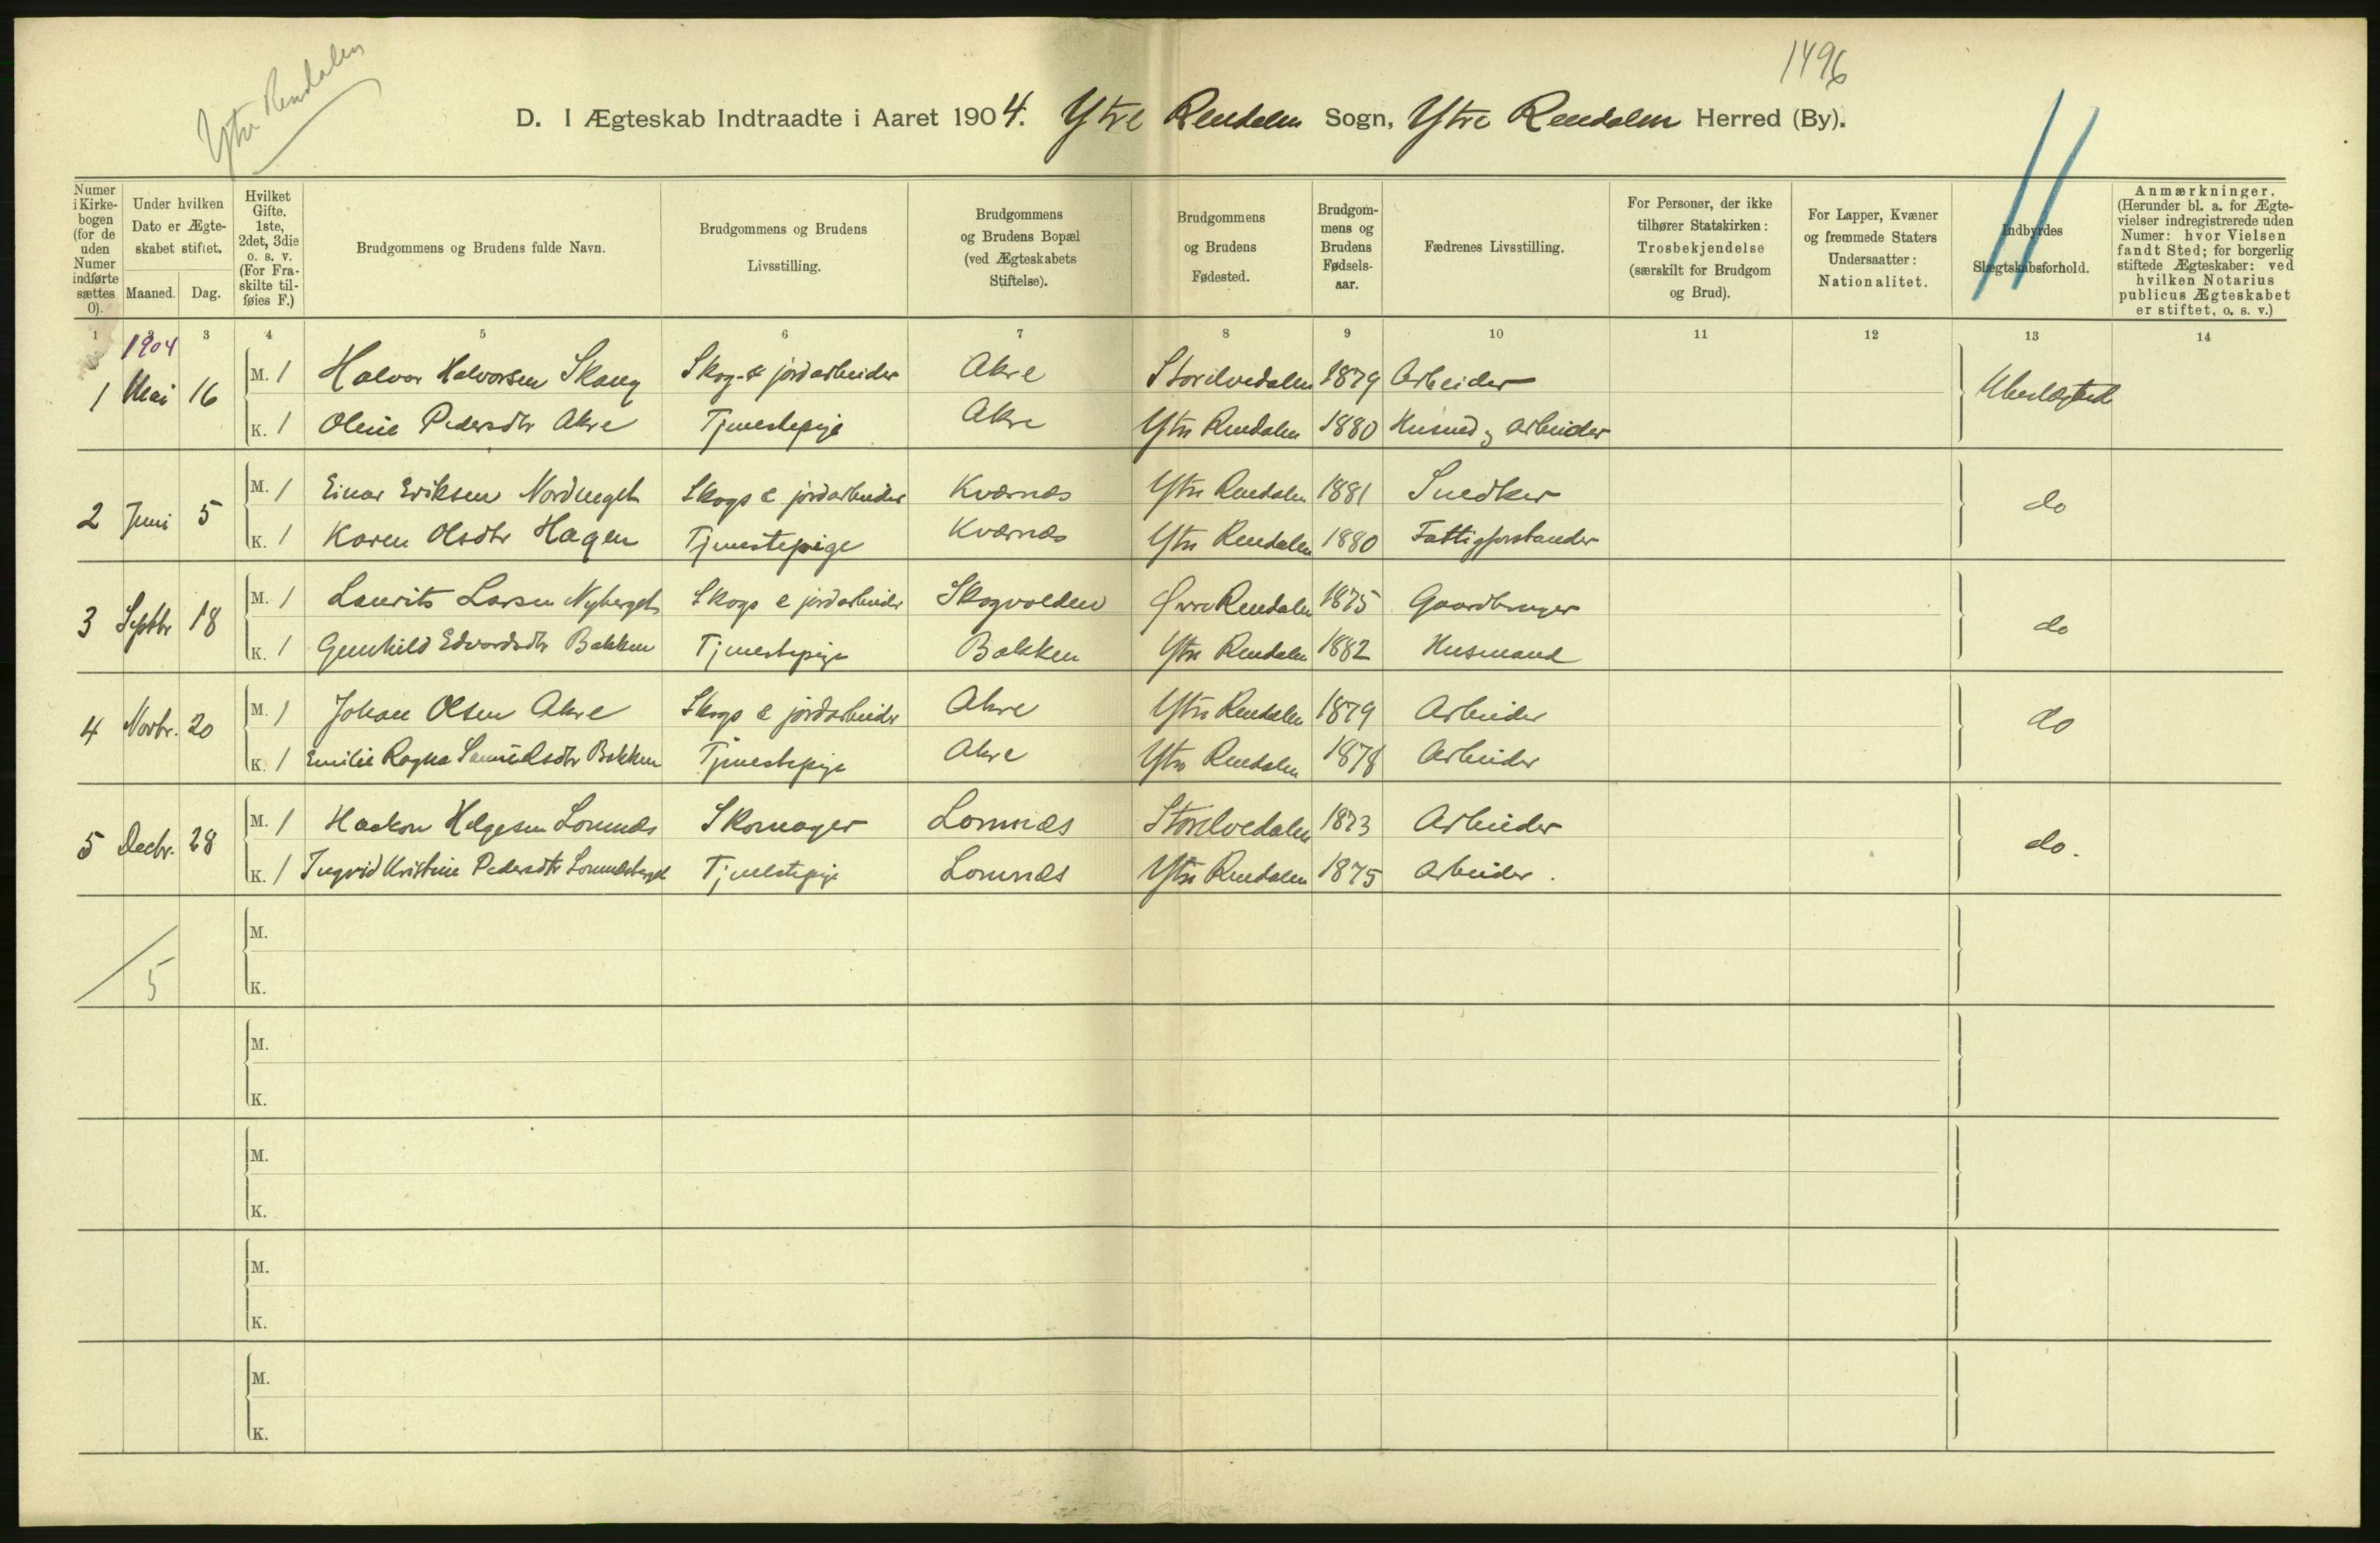 1496
Ytre Rendalen
D. I Ægteskab Indtraadte i Aaret 1904. Ytre Rendalen Sogn, Ytre Rendalen Herred (By).
Numer i Kirkebogen (for de uden Numer indførte sættes 0).
Under hvilken Dato er Ægteskabet stiftet.
Maaned. Dag.
Hvilket Gifte. 1ste, 2det, 3die o. s. v. (For Fraskilte tilføies F.)
Brudgommens og Brudens fulde Navn.
Brudgommens og Brudens Livsstilling.
Brudgommens og Brudens Bopæl (ved Ægteskabets Stiftelse).
Brudgommens og Brudens Fødested.
Brudgommens og Brudens Fødselsaar.
Fædrenes Livsstilling.
For Personer, der ikke tilhører Statskirken: Trosbekjendelse (særskilt for Brudgom og Brud).
For Lapper, Kvæner og fremmede Staters Undersaatter: Nationalitet.
Indbyrdes Slægtskabsforhold.
Anmærkninger. (Herunder bl. a. for Ægtevielser indregistrerede uden Numer: hvor Vielsen fandt Sted; for borgerlig stiftede Ægteskaber: ved hvilken Notarius publicus Ægteskabet er stiftet, o. s. v.)
1 3 4 5 6 7 8 9 10 11 12 13 14
1904
1 Mai 16 M. 1 Halvor Halvorsen Skaug Skog- & jordarbeider Akre Storelvedalen 1879 Arbeider Ubeslægted
K. 1 Oline Pedersdtr Akre Tjenestepige Akre Ytre Rendalen 1880 Husmd og arbeider
2 Juni 5 M. 1 Einar Eriksen Nordenget Skogs & jordarbeider Kværnæs Ytre Rendalen 1881 Snedker do
K. 1 Karen Olsdtr Hagen Tjenestepige Kværnæs Ytre Rendalen 1880 Fattigforstander
3 Septbr 18 M. 1 Laurits Larsen Nyberget Skogs & jordarbeider Skogvolden Øvre Rendalen 1875 Gaardbruger do
K. 1 Gunhild Edvardsdtr Bakken Tjenestepige Bakken Ytre Rendalen 1882 Husmand
4 Novbr. 20 M. 1 Johan Olsen Akre Skogs & jordarbeider Akre Ytre Rendalen 1879 Arbeider do
K. 1 Emilie Ragna Samuelsdtr Bakken Tjenestepige Akre Ytre Rendalen 1878 Arbeider
5 Decbr. 28 M. 1 Haakon Helgesen Lomnæs Skomager Lomnæs Storelvedalen 1873 Arbeider do.
K. 1 Ingrid Kristine Pedersdtr Lomnæsberget Tjenestepige Lomnæs Ytre Rendalen 1875 Arbeider.
M.
5
K.
M.
K.
M.
K.
M.
K.
M.
K.